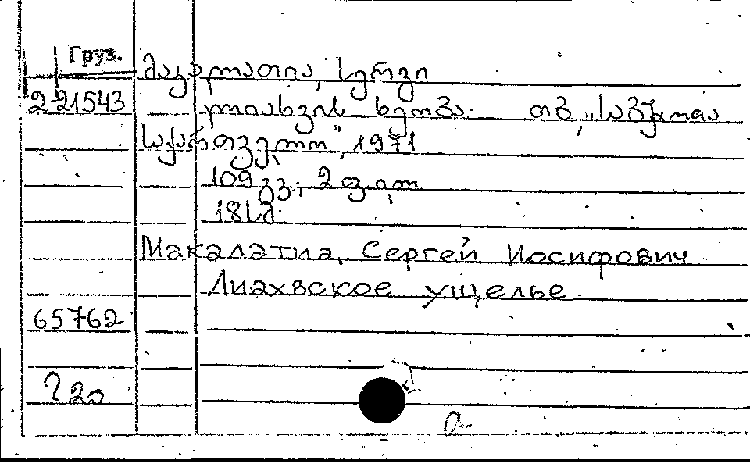 Груз.
მაკალათია, სერგი
221543 ლიახვის ხეობა. თბ., „საბჭოთა
საქართველო", 1971
109 გვ.; 2 ფ. ილ.
18 სმ.
Макалатиа, Сергей Иосифович
Лиахвское ущелье
65762